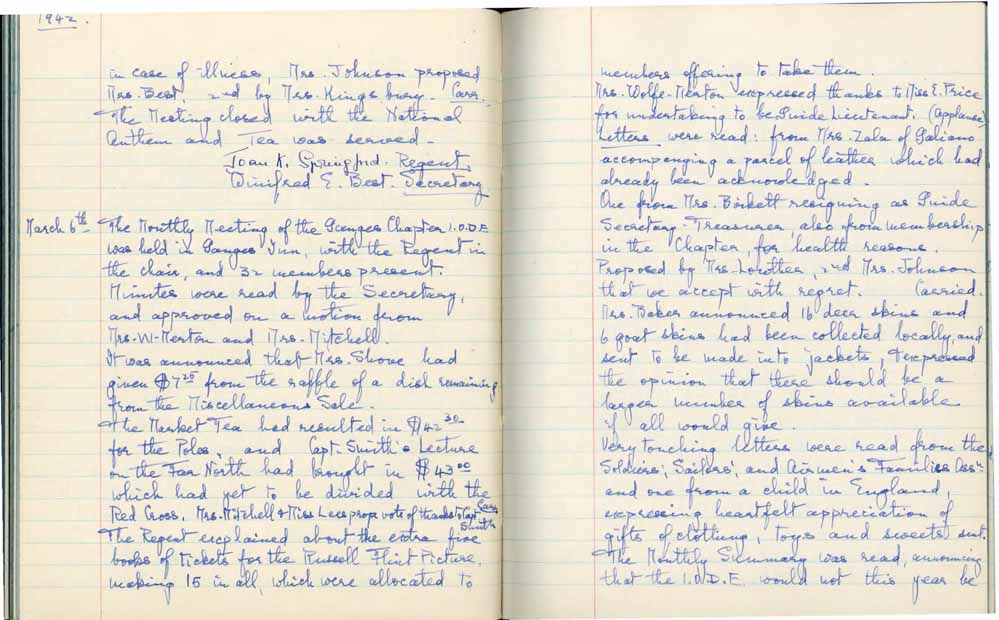 1942.
in case of illness, Mrs. Johnson proposed
Mrs. Best, 2nd by Mrs. Kingsbury. Carr.
The Meeting closed with the National
Anthem and Tea was served.
Joan K. Springford. Regent.
Winifred E. Best. Secretary
March 6th The Monthly Meeting of the Ganges Chapter I.O.D.E
was held in Ganges Inn, with the Regent in
the chair, and 32 members present.
Minutes were read by the Secretary,
and approved on a motion from
Mrs. W-Merton and Mrs. Mitchell.
It was announced that Mrs. Shove had
given $7 25 from the raffle of a dish remaining
from the Miscellaneous Sale.
The Market Tea had resulted in $42 30
for the Poles, and Capt. Smith's Lecture
on the Far North had brought in $43 00
which had yet to be divided with the
Red Cross. Mrs. Mitchell & Miss Lees prop. vote of thanks to Capt Smith Carr
The Regent explained about the extra five
books of Tickets for the Russell Flint Picture,
making 15 in all, which were allocated to
members offering to take them.
Mrs. Wolfe-Merton expressed thanks to Miss E. Price
for undertaking to be Guide Lieutenant. (Applause)
Letters were read: from Mrs. Zala of Galiano
accompanying a parcel of leather which had
already been acknowledged.
One from Mrs. Birkett resigning as Guide
Secretary-Treasurer, also from membership
in the Chapter, for health reasons.
Proposed by Mrs. 2nd Mrs. Johnson
that we accept with regret. Carried.
Mrs. Baker announced 16 deer skins and
6 goat skins had been collected locally, and
sent to be made into jackets, & expressed
the opinion that there should be a
larger number of skins available
if all would give.
Very touching letters were read from the
Soldiers', Sailors', and Airmen's Families Assn
and one from a child in England,
expressing heartfelt appreciation of
gifts of clothing, toys and sweets sent.
The Monthly Summary was read, announcing
that the I.O.D.E. would not this year be